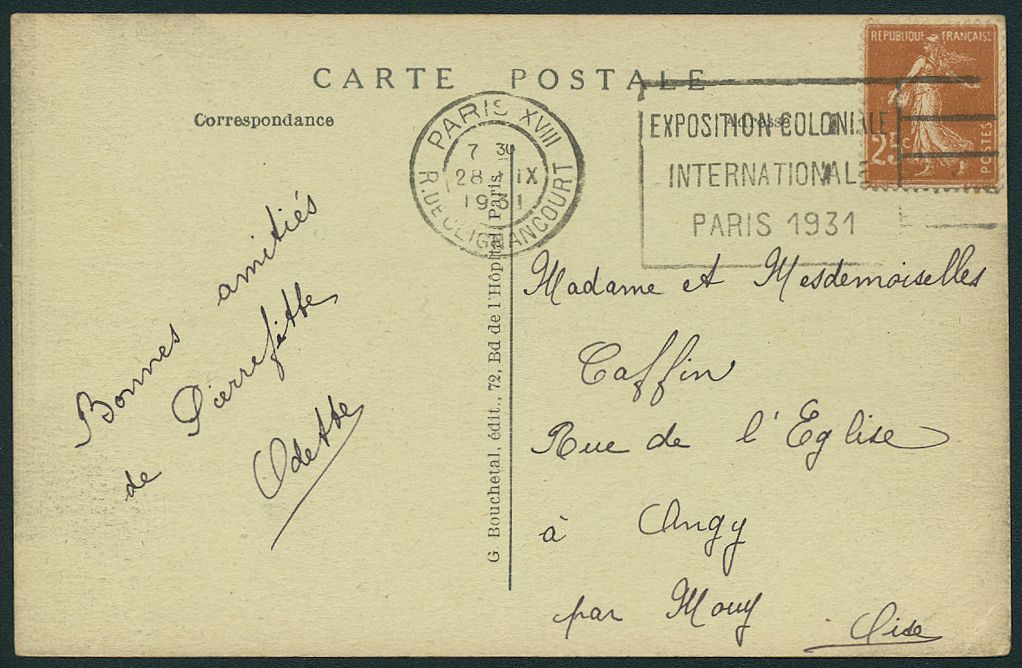 CARTE POSTALE
Correspondance
Adresse
REPUBLIQUE FRANÇAISE
25c
POSTES
PARIS XVIII
7 30
28 IX
1931
R. DE CLIGNANCOURT
EXPOSITION COLONIALE
INTERNATIONALE
PARIS 1931
Bonnes amitiés
de Pierrefitte
Odette
G. Bouchetal, édit., 72, Bd de l'Hôpital, Paris.
Madame et Mesdemoiselles
Caffin
Rue de l'Eglise
à Angy
par Mouy
Oise